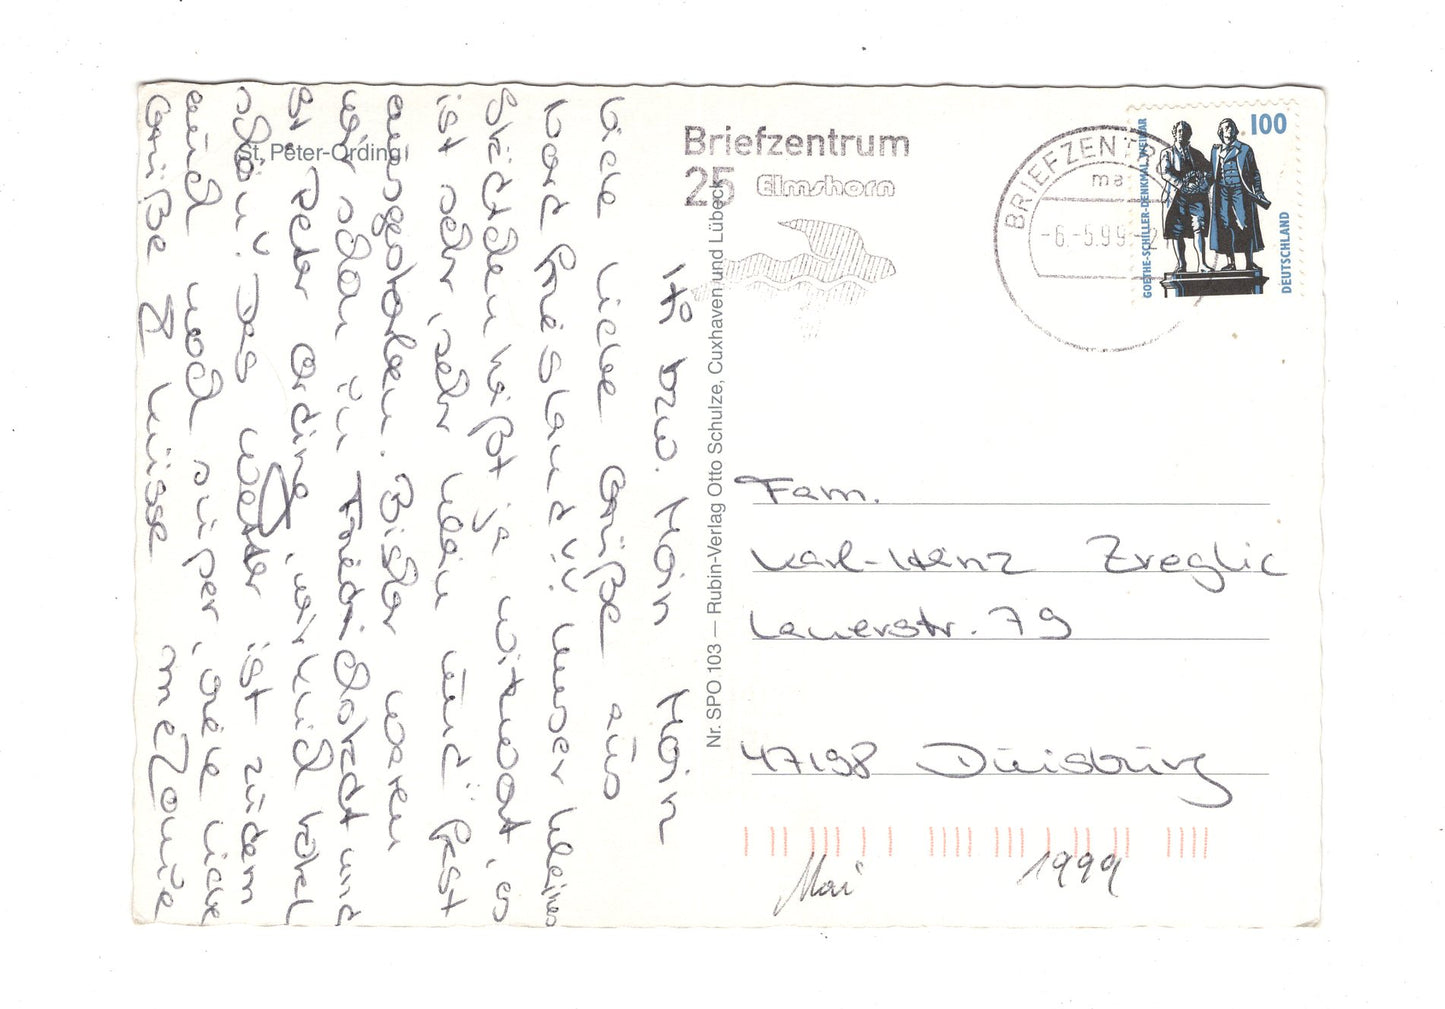 St. Peter-Ording
Hi bzw. Moin Moin
Viele liebe Grüße aus
Nord friesland!! Unser kleines
Städtchen heißt ja witzwort, es
ist sehr, sehr klein und fast
ausgestorben. Bisher waren
wir schon in Friedrichstadt und
St. Peter Ording, wirklich total
schön! Das Wetter ist zudem
auch noch super, viele liebe
Grüße & Küsse
Nr. SPO 103 — Rubin-Verlag Otto Schulze, Cuxhaven und Lübeck
Briefzentrum
25 Elmshorn
BRIEFZENTRU
ma
-6.-5.99-2
100
GOETHE-SCHILLER-DENKMAL WEIMAR
DEUTSCHLAND
Fam.
Karl-Heinz Zreglic
Lauerstr. 79
47198 Duisburg
Mai 1999